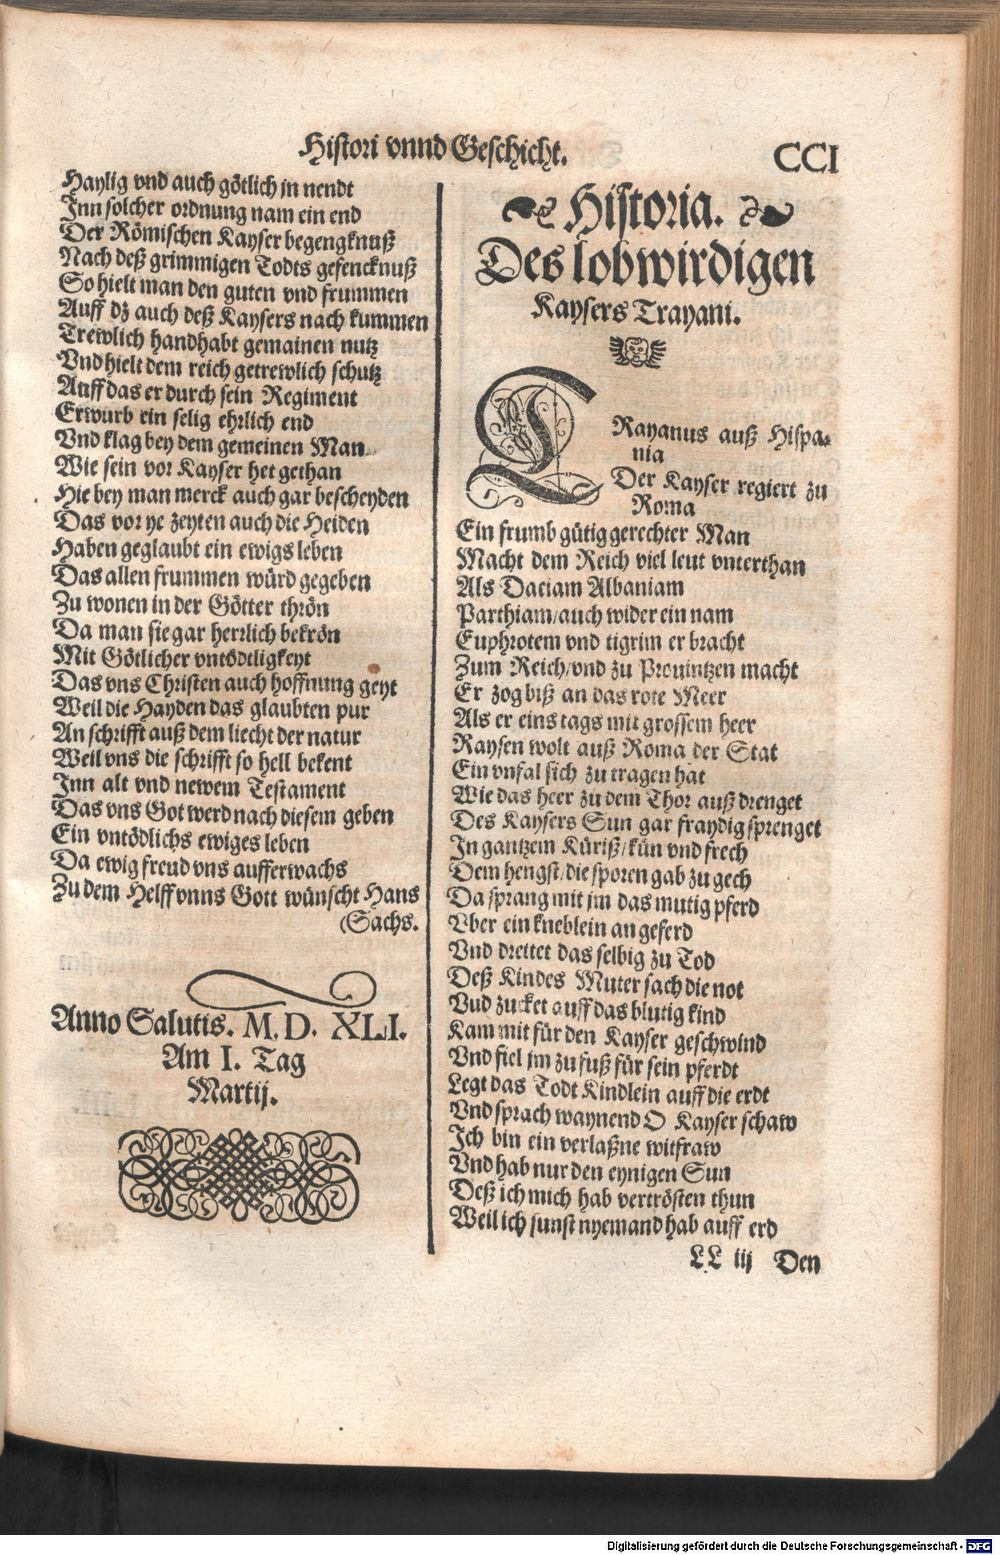 Histori vnnd Geschicht.
CCI
Haylig vnd auch götlich jn nendt
Inn solcher ordnung nam ein end
Der Römischen Kayser begengknuß
Nach deß grimmigen Todts gefencknuß
So hielt man den guten vnd frummen
Auff dz auch deß Kaysers nach kummen
Trewlich handhabt gemainen nutz
Vnd hielt dem reich getrewlich schutz
Auff das er durch sein Regiment
Erwurb ein selig ehrlich end
Vnd klag bey dem gemeinen Man
Wie sein vor Kayser het gethan
Hie bey man merck auch gar bescheyden
Das vor ye zeyten auch die Heiden
Haben geglaubt ein ewigs leben
Das allen frummen würd gegeben
Zu wonen in der Götter thrön
Da man sie gar herrlich bekrön
Mit Götlicher vntödtligkeyt
Das vns Christen auch hoffnung geyt
Weil die Hayden das glaubten pur
An schrifft auß dem liecht der natur
Weil vns die schrifft so hell bekent
Inn alt vnd newem Testament
Das vns Got werd nach diesem geben
Ein vntödlichs ewiges leben
Da ewig freud vns aufferwachs
Zu dem Helff vnns Gott wünscht Hans
(Sachs.
Anno Salutis. M. D. XLI.
Am I. Tag
Martij.
Historia.
Des lobwirdigen
Kaysers Trayani.
TRayanus auß Hispa-
nia
Der Kayser regiert zu
Roma
Ein frumb gütig gerechter Man
Macht dem Reich viel leut vnterthan
Als Daciam Albaniam
Parthiam/auch wider ein nam
Euphrotem vnd tigrim er bracht
Zum Reich/vnd zu Prouintzen macht
Er zog biß an das rote Meer
Als er eins tags mit grossem heer
Raysen wolt auß Roma der Stat
Ein vnfal sich zu tragen hat
Wie das heer zu dem Thor auß drenget
Des Kaysers Sun gar fraydig sprenget
In gantzem Küriß/kün vnd frech
Dem hengst/die sporen gab zu gech
Da sprang mit jm das mutig pferd
Vber ein kneblein an geferd
Vnd drettet das selbig zu Tod
Deß Kindes Muter sach die not
Vnd zucket auff das blutig kind
Kam mit für den Kayser geschwind
Vnd fiel jm zu fuß für sein pferdt
Legt das Todt Kindlein auff die erdt
Vnd sprach waynend O Kayser schaw
Ich bin ein verlaßne witfraw
Vnd hab nur den eynigen Sun
Deß ich mich hab vertrösten thun
Weil ich sunst nyemand hab auff erd
LL iij Den
Digitalisierung gefördert durch die Deutsche Forschungsgemeinschaft - DFG